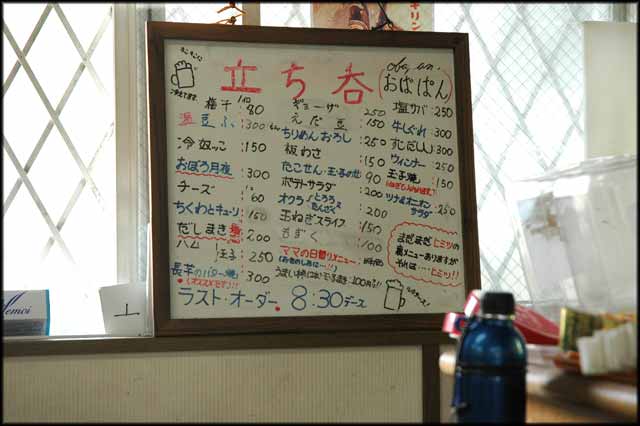 キリン
立ち呑
おばぱん
梅干 1ケ 80
温豆ふ 300
冷奴っこ 150
おぼろ月夜 300
チーズ 1ケ 60
ちくわとキューリ 150
だしまき 200
ハム 玉子 250
長芋のバター焼 300
(オススメです!!)
ギョーザ 250
えだ豆 150
ちりめんおろし 250
板わさ 150
たこせん・玉子の 90
ポテトサラダ 200
オクラ とろろ たんざく 200
玉ねぎスライス 150
もずく 100
ママの日替りメニュー
塩サバ 250
牛しぐれ 300
すじだいこん 300
ウィンナー 250
玉子焼 150
ツナ&オニオンサラダ 250
まだまだヒミツの
裏メニューありますが
それは‥‥ヒミツ!!
ラスト・オーダー 8:30デース
Memoi
土